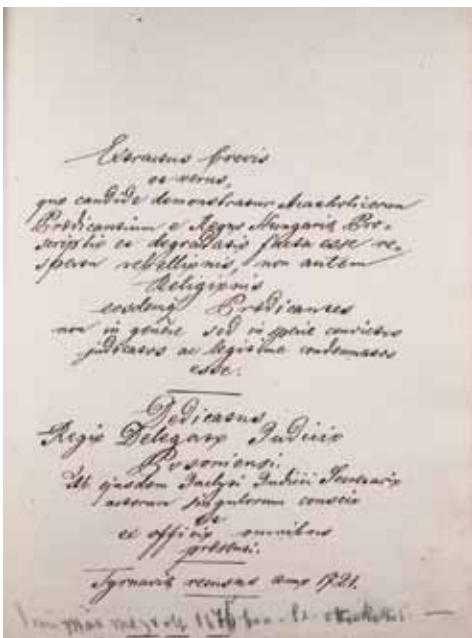 Extractus brevis
et verus,
quo candide demonstratur Acatholicorum
Prædicantium e Regno Hungariæ Pro-
scriptio et degradatio facta esse re-
spectu rebellionis, non autem
Religionis
eosdemq Prædicantes
non in genere sed in specie convictos
judicatos ac legitime condemnatos
esse.
Dedicatus
Regio Delegato Judicio
Posoniensi.
Ut ejusdem Inclyti Judicii
actorum singulorum conscio
et
ex officio omnibus
præsenti.
Tyrnaviæ recusus anno 1721.
már 1676 ban.